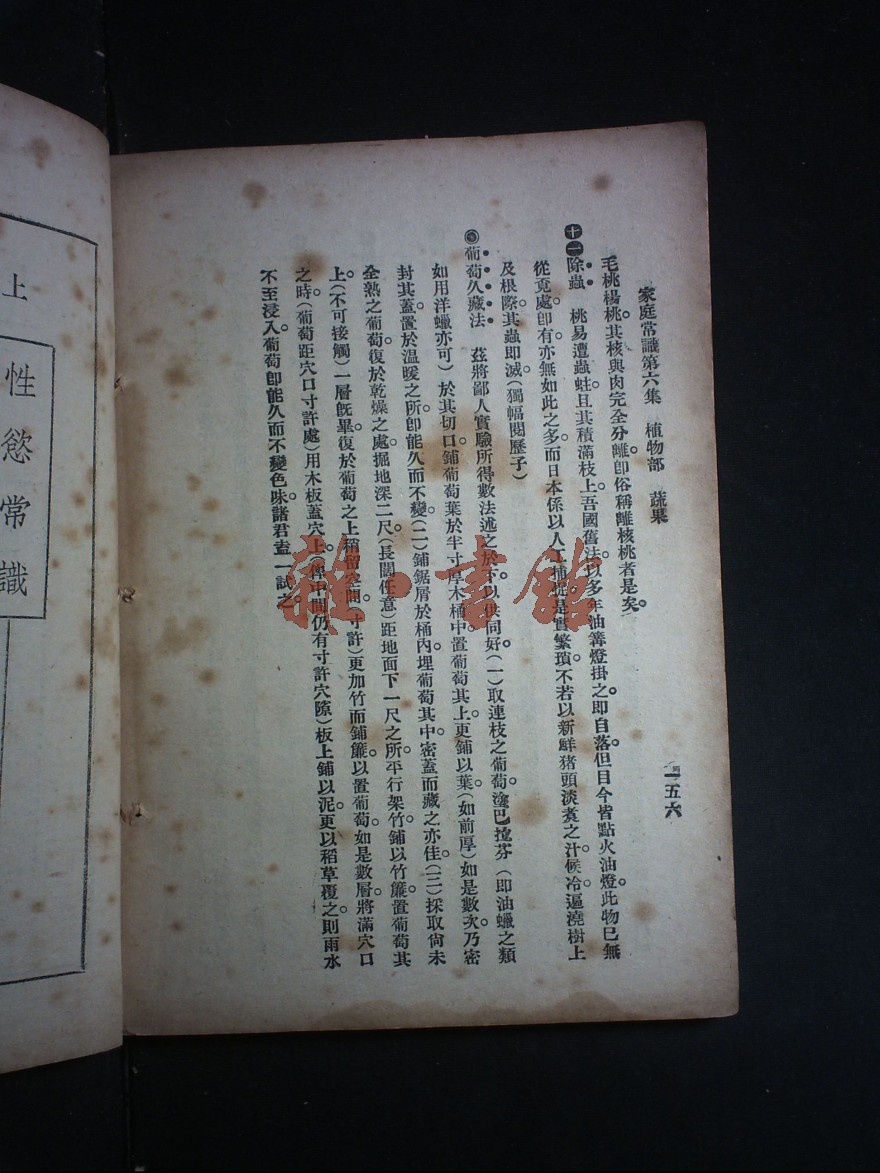 家庭常識第六集 植物部 蔬果
一五六
毛桃楊桃其核與肉完全分離卽俗稱離核桃者是矣。
十一除蟲 桃易遭蟲蛀且其積滿枝上吾國舊法以多年油篝燈掛之卽自落但目今皆點火油燈此物巳無
從覓處卽有亦無如此之多而日本係以人工捕捉是實繁瑣不若以新鮮猪頭淡煑之汁候冷逼澆樹上
及根際其蟲卽滅(獨幅閱歷子)
葡萄久藏法 茲將鄙人實驗所得數法述之於下以供同好(一)取連枝之葡萄塗巴撓芬(卽油蠟之類
如用洋蠟亦可)於其切口鋪葡萄葉於半寸厚木桶中置葡萄其上更鋪以葉(如前厚)如是數次乃密
封其蓋置於温暖之所卽能久而不變(二)鋪鋸屑於桶內埋葡萄其中密蓋而藏之亦佳(三)採取尙未
全熟之葡萄復於乾燥之處掘地深二尺(長闊任意)距地面下一尺之所平行架竹鋪以竹簾置葡萄其
上(不可接觸)一層旣畢復於葡萄之上稍留空間(寸許)更加竹而鋪簾以置葡萄如是數層將滿穴口
之時(葡萄距穴口寸許處)用木板蓋穴上(俾中間仍有寸許穴隙)板上鋪以泥更以稻草覆之則雨水
不至浸入葡萄卽能久而不變色味諸君盍一試之。
上
性慾常識
雜·書館